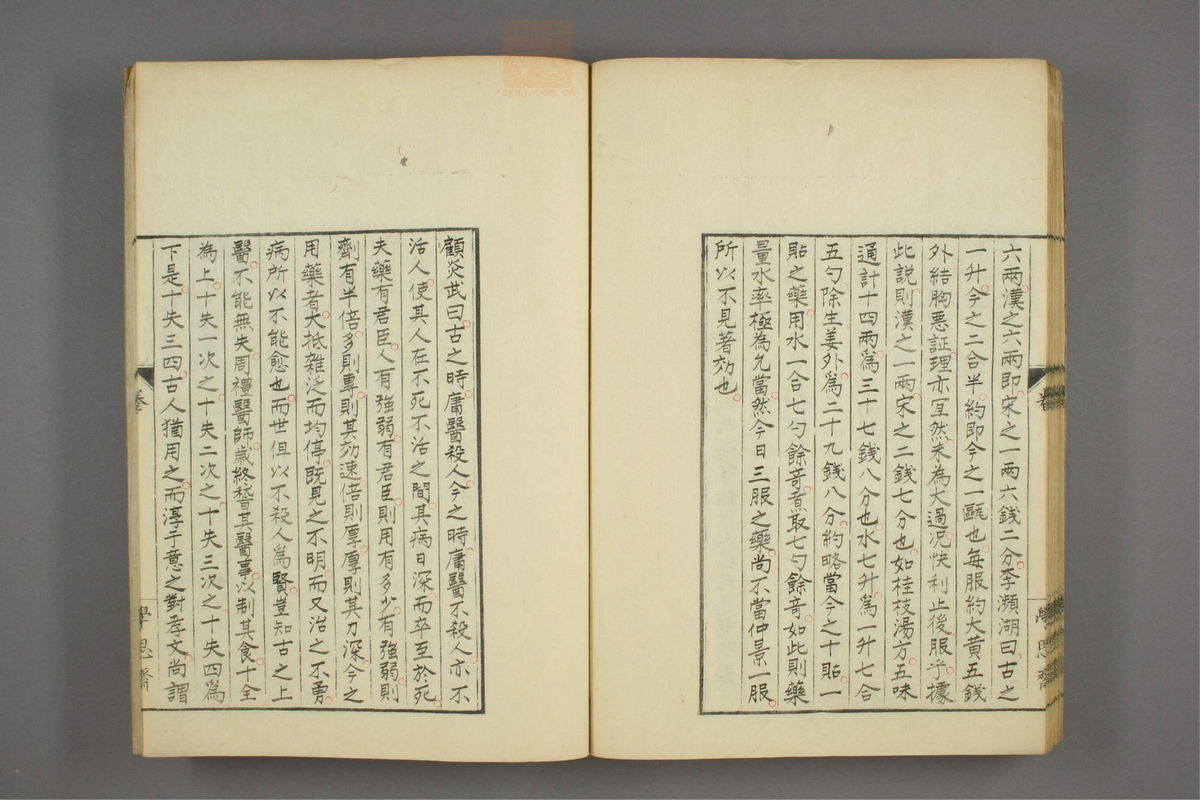 六兩漢之六兩即宋之一兩六錢二分李瀕湖曰古之
一升今之二合半約即今之一甌也每服約大黄五錢
外結胸悪証理亦宜然未為大過况快利止後服乎據
此説則漢之一兩宋之二錢七分也如桂枝湯方五味
通計十四兩爲三十七錢八分也水七升爲一升七合
五勺除生姜外爲二十九錢八分約略當今之十貼一
貼之藥用水一合七勺餘竒煮取七勺餘竒如此則藥
量水率極為允當然今日三服之藥尚不當仲景一服
所以不見著効也
顧炎武曰古之時庸醫殺人今之時庸醫不殺人亦不
活人使其人在不死不活之間其病日深而卒至於死
夫藥有君臣人有強弱有君臣則用有多少有強弱則
劑有半倍多則專則其効速倍則厚厚則其力深今之
用藥者大抵雜泛而均停既見之不明而又治之不勇
病所以不能愈也而世但以不殺人爲賢豈知古之上
醫不能無失周禮醫師歳終稽其醫事以制其食十全
為上十失一次之十失二次之十失三次之十失四爲
下是十失三四古人猶用之而淳于意之對孝文尚謂
學思齋